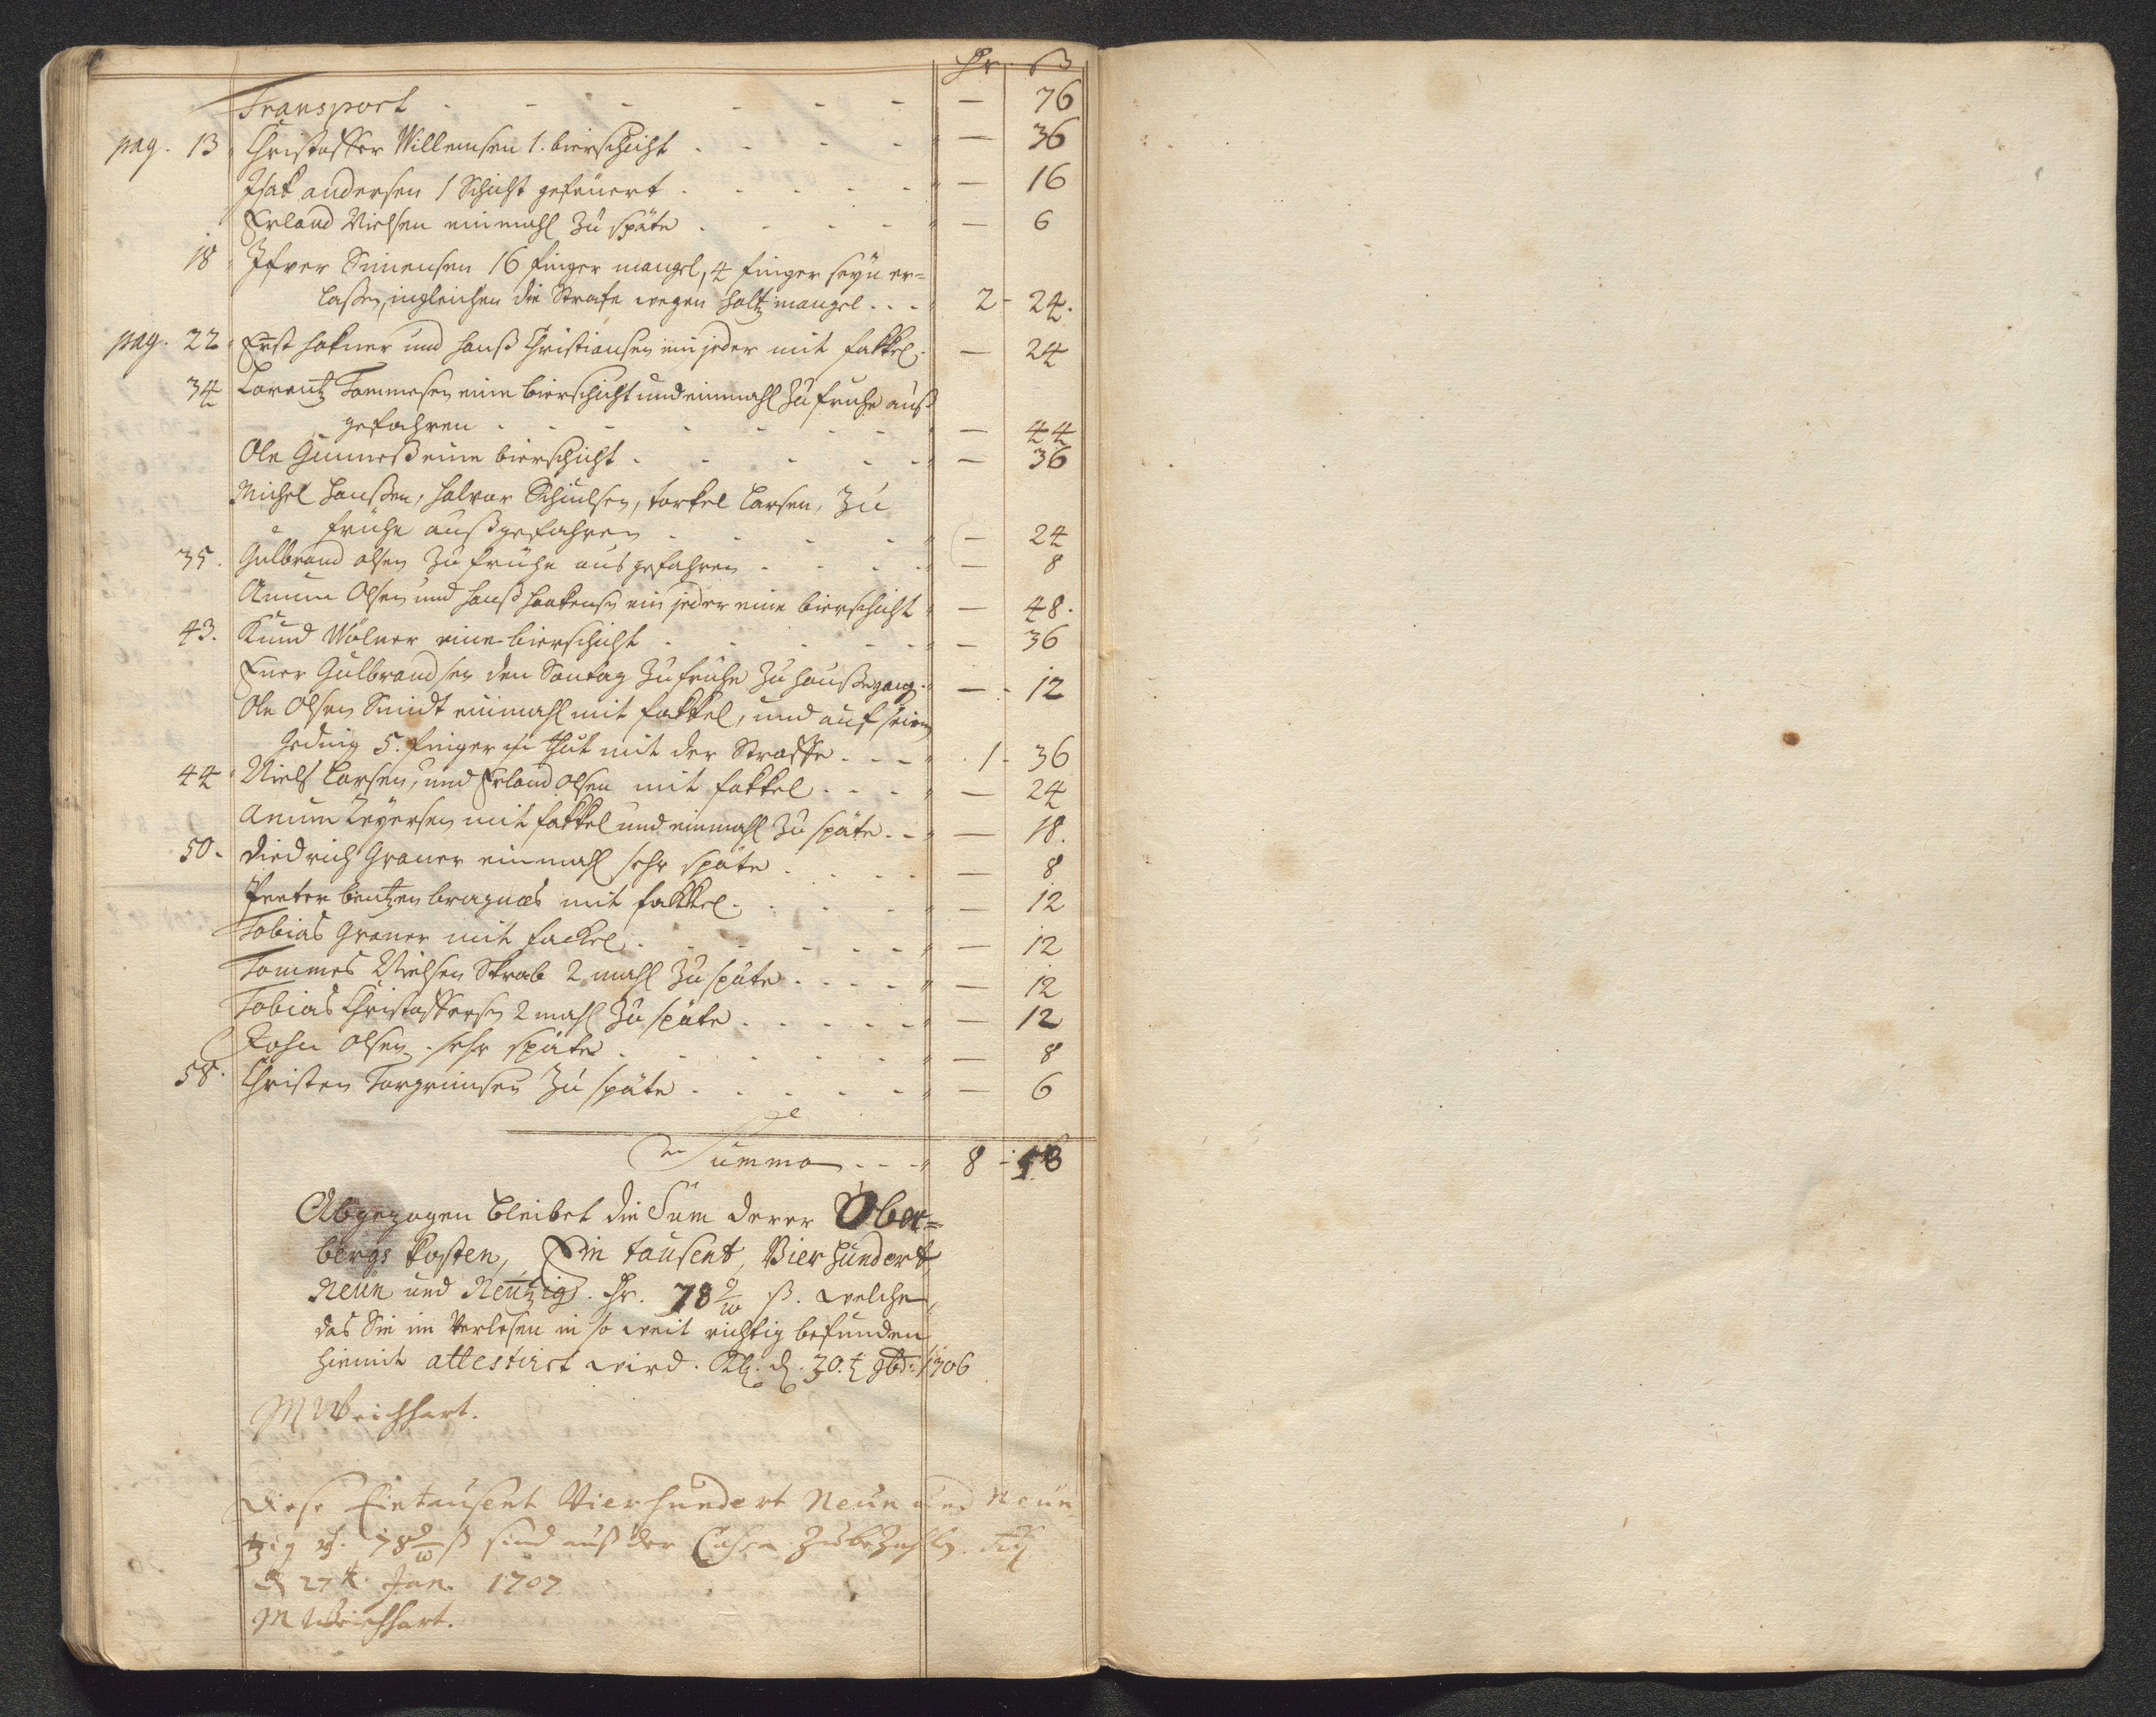 Hr ß
Transport - - - - - - — 76
pag. 13 Christoffer Willemsen 1. bierschicht - - - — 36
Isak andersen 1 Schicht gefeuert - - - - — 16
Erland Nielsen einmahl zu späte - - - - — 6
18 Ifver Simensen 16 finger mangel, 4 finger seyn er=
laßen, ingleichen die Strafe wegen holtz mangel - - - 2 - 24.
pag. 22 und Hanß Christiansen ein jeder mit fakkel. — 24
34 Lorentz Tommesen eine bierschicht und einmahl zu fruhe auß
gefahren - - - - - — 44
Ole eine bierschicht - - - - — 36
Michel Hanßen, Halvor, torkel Larsen, zu
fruhe außgefahren - - - - — 24
35. Gulbrand olsen zu fruhe aus gefahren - - - — 8
Olsen und Hanß Haakensen ein jeder eine bierschicht — 48.
43. Knud Wölner eine bierschicht - - - - — 36
Ener Gulbrandsen den Sontag zu fruhe zu Hauße gang. — 12
Ole Olsen Smidt einmahl mit fakkel, und auf seinem
Geding 5. finger thut mit der Straffe - - - 1 - 36
44 Niels Larsen, und Erland olsen mit fakkel - - - — 24
mit fakkel und einmahl zu späte - - — 18.
50. Diedrich Graner einmahl sehr späte - - - - — 8
Peeter bentzen bragnæs mit fakkel - - - — 12
Tobias Graner mit fackel - - - - — 12
Tommes Nielsen Skrab 2 mahl zu späte - - - - — 12
Tobias Christoffersen 2 mahl zu späte - - - - — 12
John olsen sehr späte - - - - — 8
58. Christen Torgrimsen zu späte - - - - — 6
Summa - - - 8 - 58
Abgezogen bleibet die Sum derer Ober=
bergs kosten, Ein tausent, Vierhundert
Neün und Neüntzig. Hr. 78 9/10 ß. welche,
das Sie im Verlesen in so weit richtig befunden
hiemit attestirt wird. d. 30. 9br: 1706
M Weichhart.
Diese Eintausent Vierhundert Neün und Neün
tzig 78 9/10 ß sind auß der Cassa zu bezahlen.
d 27t Jan. 1707
M Weichhart.